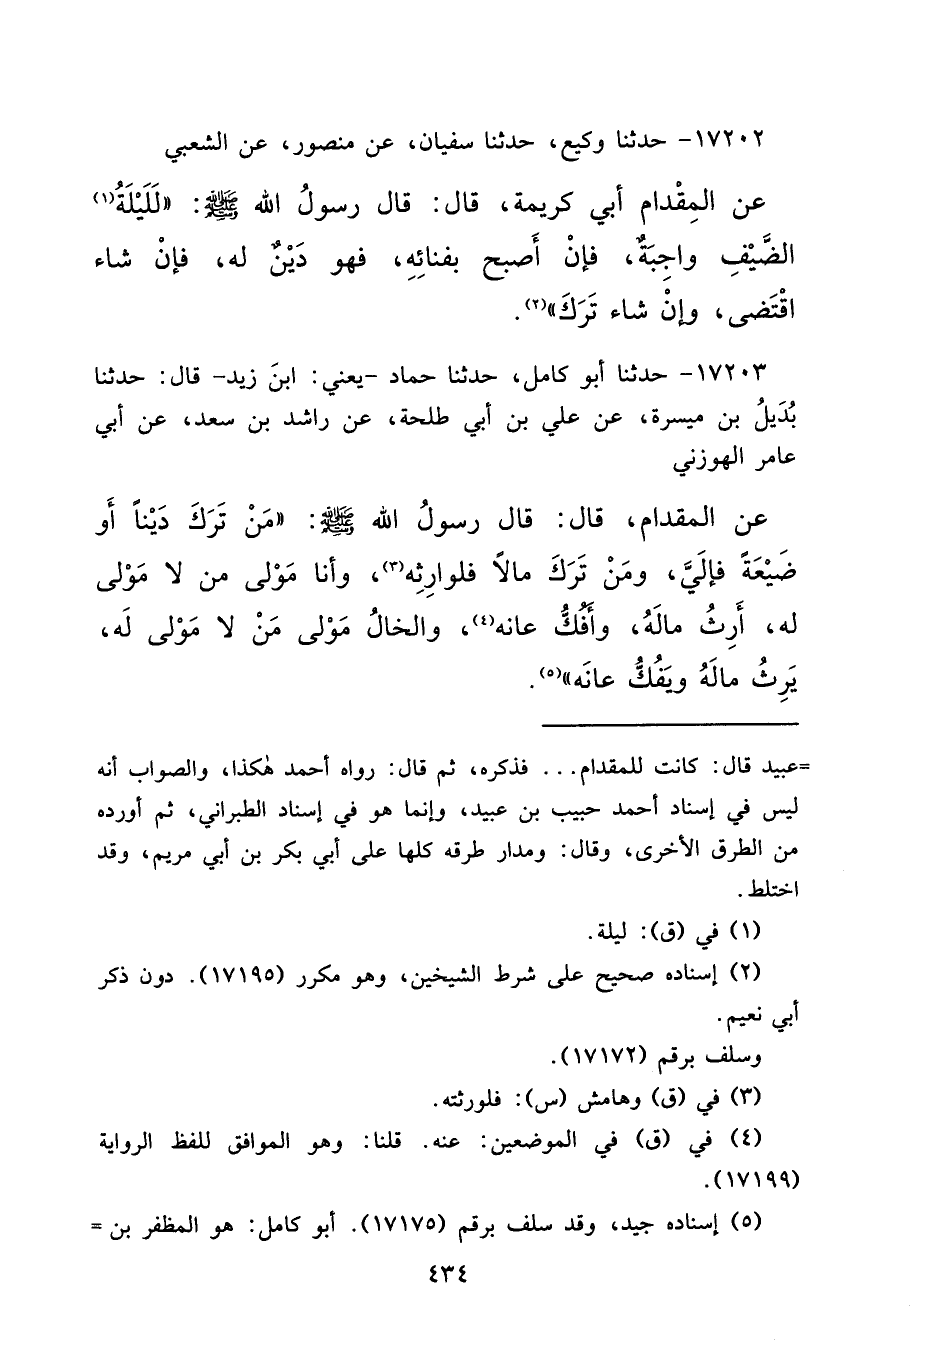 ١٧٢٠٢- حدثنا وكيع، حدثنا سفيان، عن منصور، عن الشعبي
عن المِقْدام أبي كريمة، قال: قال رسولُ الله ﷺ: «لَلَيْلَةُ(١)
الضَّيْفِ واجِبَةٌ، فإنْ أَصبح بفنائِهِ، فهو دَيْنٌ له، فإنْ شاء
اقْتَضى، وإنْ شاء تَرَكَ»(٢).
١٧٢٠٣- حدثنا أبو كامل، حدثنا حماد -يعني: ابنَ زيد- قال: حدثنا
بُدَيلُ بن ميسرة، عن علي بن أبي طلحة، عن راشد بن سعد، عن أبي
عامر الهوزني
عن المقدام، قال: قال رسولُ الله ﷺ: «مَنْ تَرَكَ دَيْناً أَو
ضَيْعَةً فإلَيَّ، ومَنْ تَرَكَ مالاً فلوارِثِه(٣)، وأنا مَوْلى من لا مَوْلى
له، أَرِثُ مالَهُ، وأَفُكُّ عانه(٤)، والخالُ مَوْلى مَنْ لا مَوْلى لَه،
يَرِثُ مالَهُ ويَفُكُّ عانَه»(٥).
=عبيد قال: كانت للمقدام... فذكره، ثم قال: رواه أحمد هٰكذا، والصواب أنه
ليس في إسناد أحمد حبيب بن عبيد، وإنما هو في إسناد الطبراني، ثم أورده
من الطرق الأخرى، وقال: ومدار طرقه كلها على أبي بكر بن أبي مريم، وقد
اختلط.
(١) في (ق): ليلة.
(٢) إسناده صحيح على شرط الشيخين، وهو مكرر (١٧١٩٥). دون ذكر
أبي نعيم.
وسلف برقم (١٧١٧٢).
(٣) في (ق) وهامش (س): فلورثته.
(٤) في (ق) في الموضعين: عنه. قلنا: وهو الموافق للفظ الرواية
(١٧١٩٩).
(٥) إسناده جيد، وقد سلف برقم (١٧١٧٥). أبو كامل: هو المظفر بن =
٤٣٤